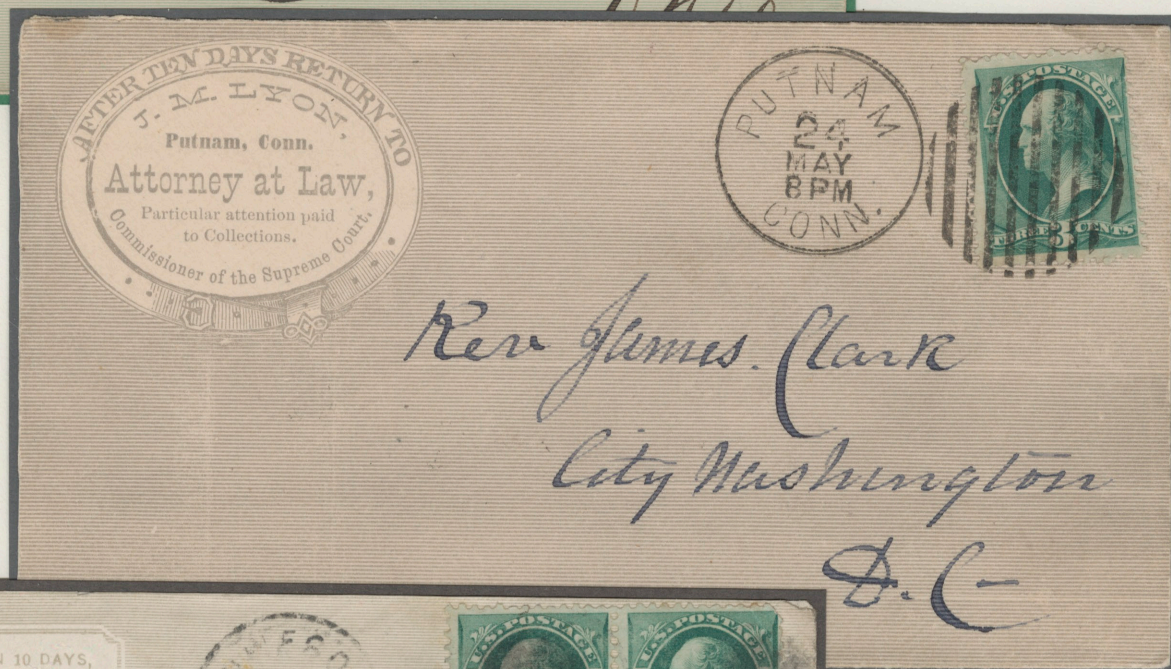 AFTER TEN DAYS RETURN TO
J. M. LYON,
Putnam, Conn.
Attorney at Law,
Particular attention paid
to Collections.
Commissioner of the Supreme Court.
PUTNAM
24
MAY
8 PM
CONN.
U.S. POSTAGE
THREE 3 CENTS
Rev James. Clark
City Washington
D. C
N 10 DAYS,
U.S. POSTAGE
U.S. POSTAGE